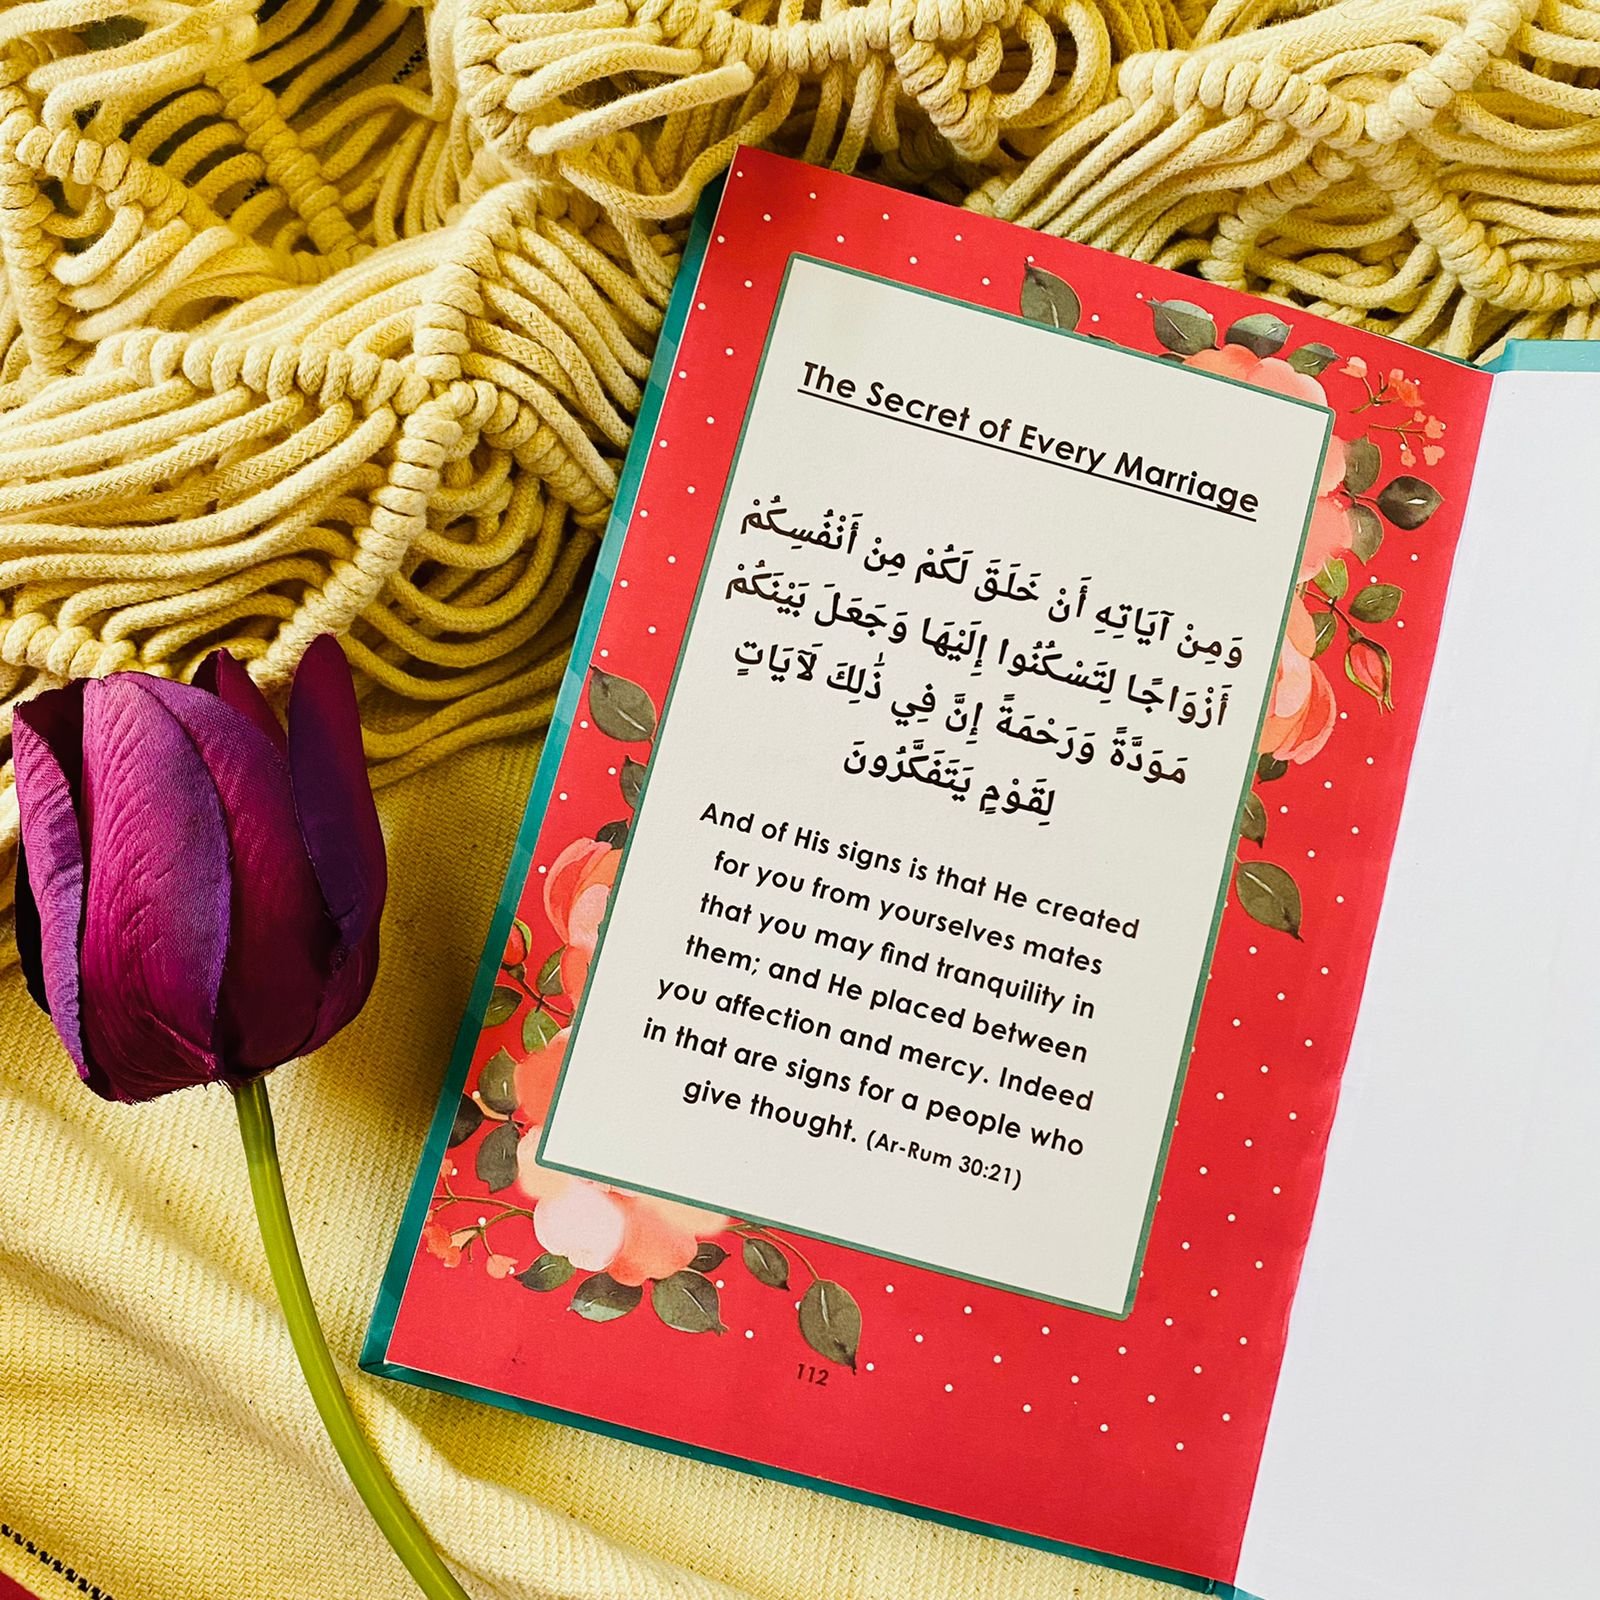 The Secret of Every Marriage
وَمِنْ آيَاتِهِ أَنْ خَلَقَ لَكُمْ مِنْ أَنْفُسِكُمْ
أَزْوَاجًا لِتَسْكُنُوا إِلَيْهَا وَجَعَلَ بَيْنَكُمْ
مَوَدَّةً وَرَحْمَةً إِنَّ فِي ذَٰلِكَ لَآيَاتٍ
لِقَوْمٍ يَتَفَكَّرُونَ
And of His signs is that He created
for you from yourselves mates
that you may find tranquility in
them; and He placed between
you affection and mercy. Indeed
in that are signs for a people who
give thought. (Ar-Rum 30:21)
112